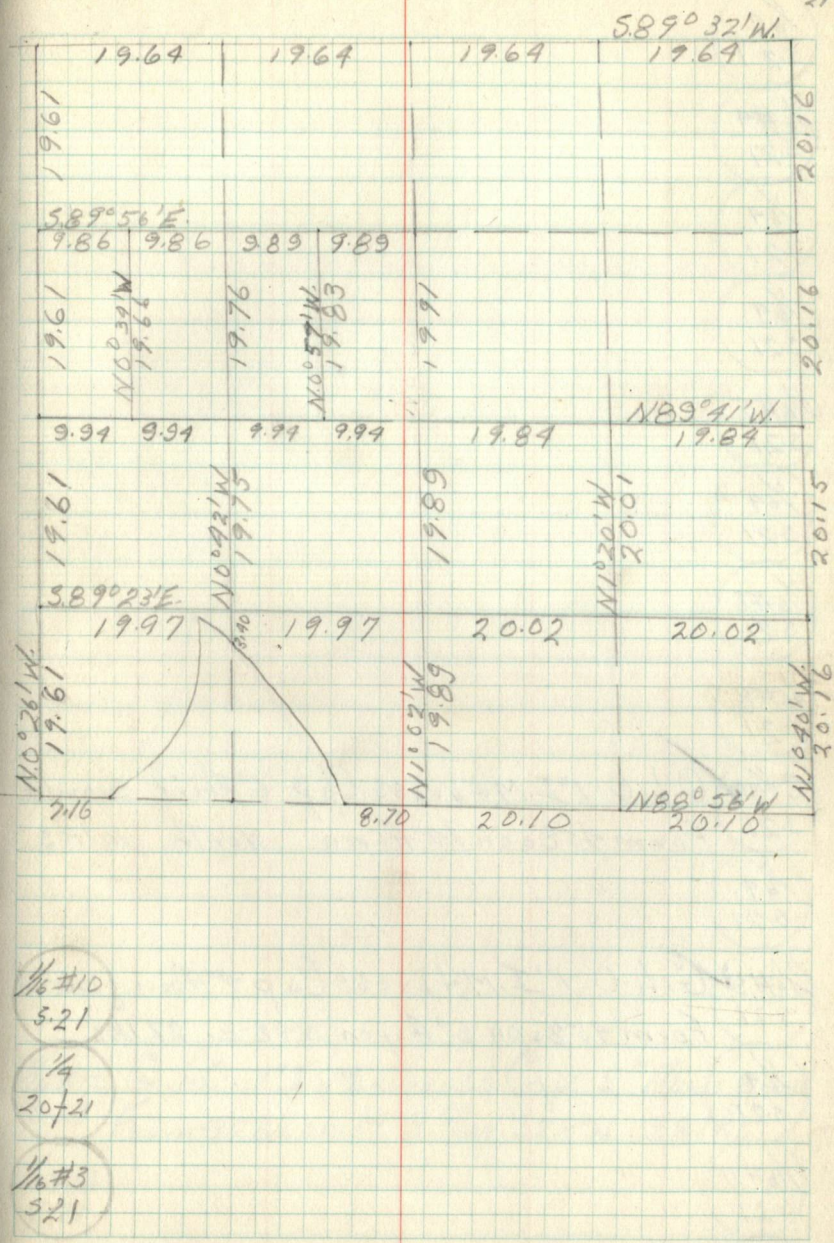 21
S.89° 32' W.
19.64 19.64 19.64 19.64
19.61 20.16
S.89° 56' E.
9.86 9.86 9.89 9.89
19.61 N.0° 39' W 19.66 19.76 N.0° 57' W. 19.83 19.91 20.16
N.89° 41' W.
9.94 9.94 9.94 9.94 19.84 19.84
19.61 N.0° 42' W 19.75 19.89 N.1° 20' W 20.01 20.15
S.89° 23' E.
19.97 3.40 19.97 20.02 20.02
N.0° 26' W. 19.61 N.1° 02' W 19.89 N.1° 40' W. 20.16
N.88° 56' W
7.16 8.70 20.10 20.10
1/16 #10
S.21
1/4
20+21
1/16 #3
S21